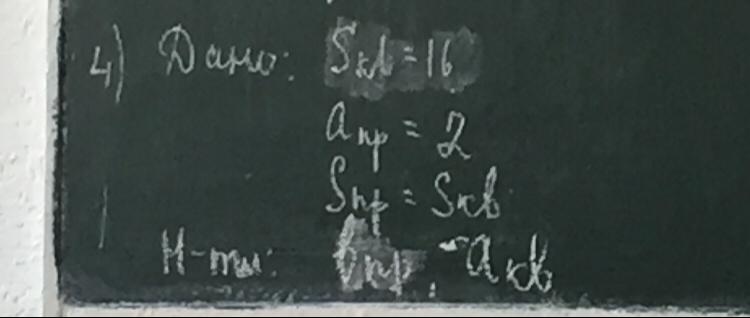 4) Дано: Sкв = 16
aпр = 2
Sпр = Sкв
Н-ти: bпр, aкв